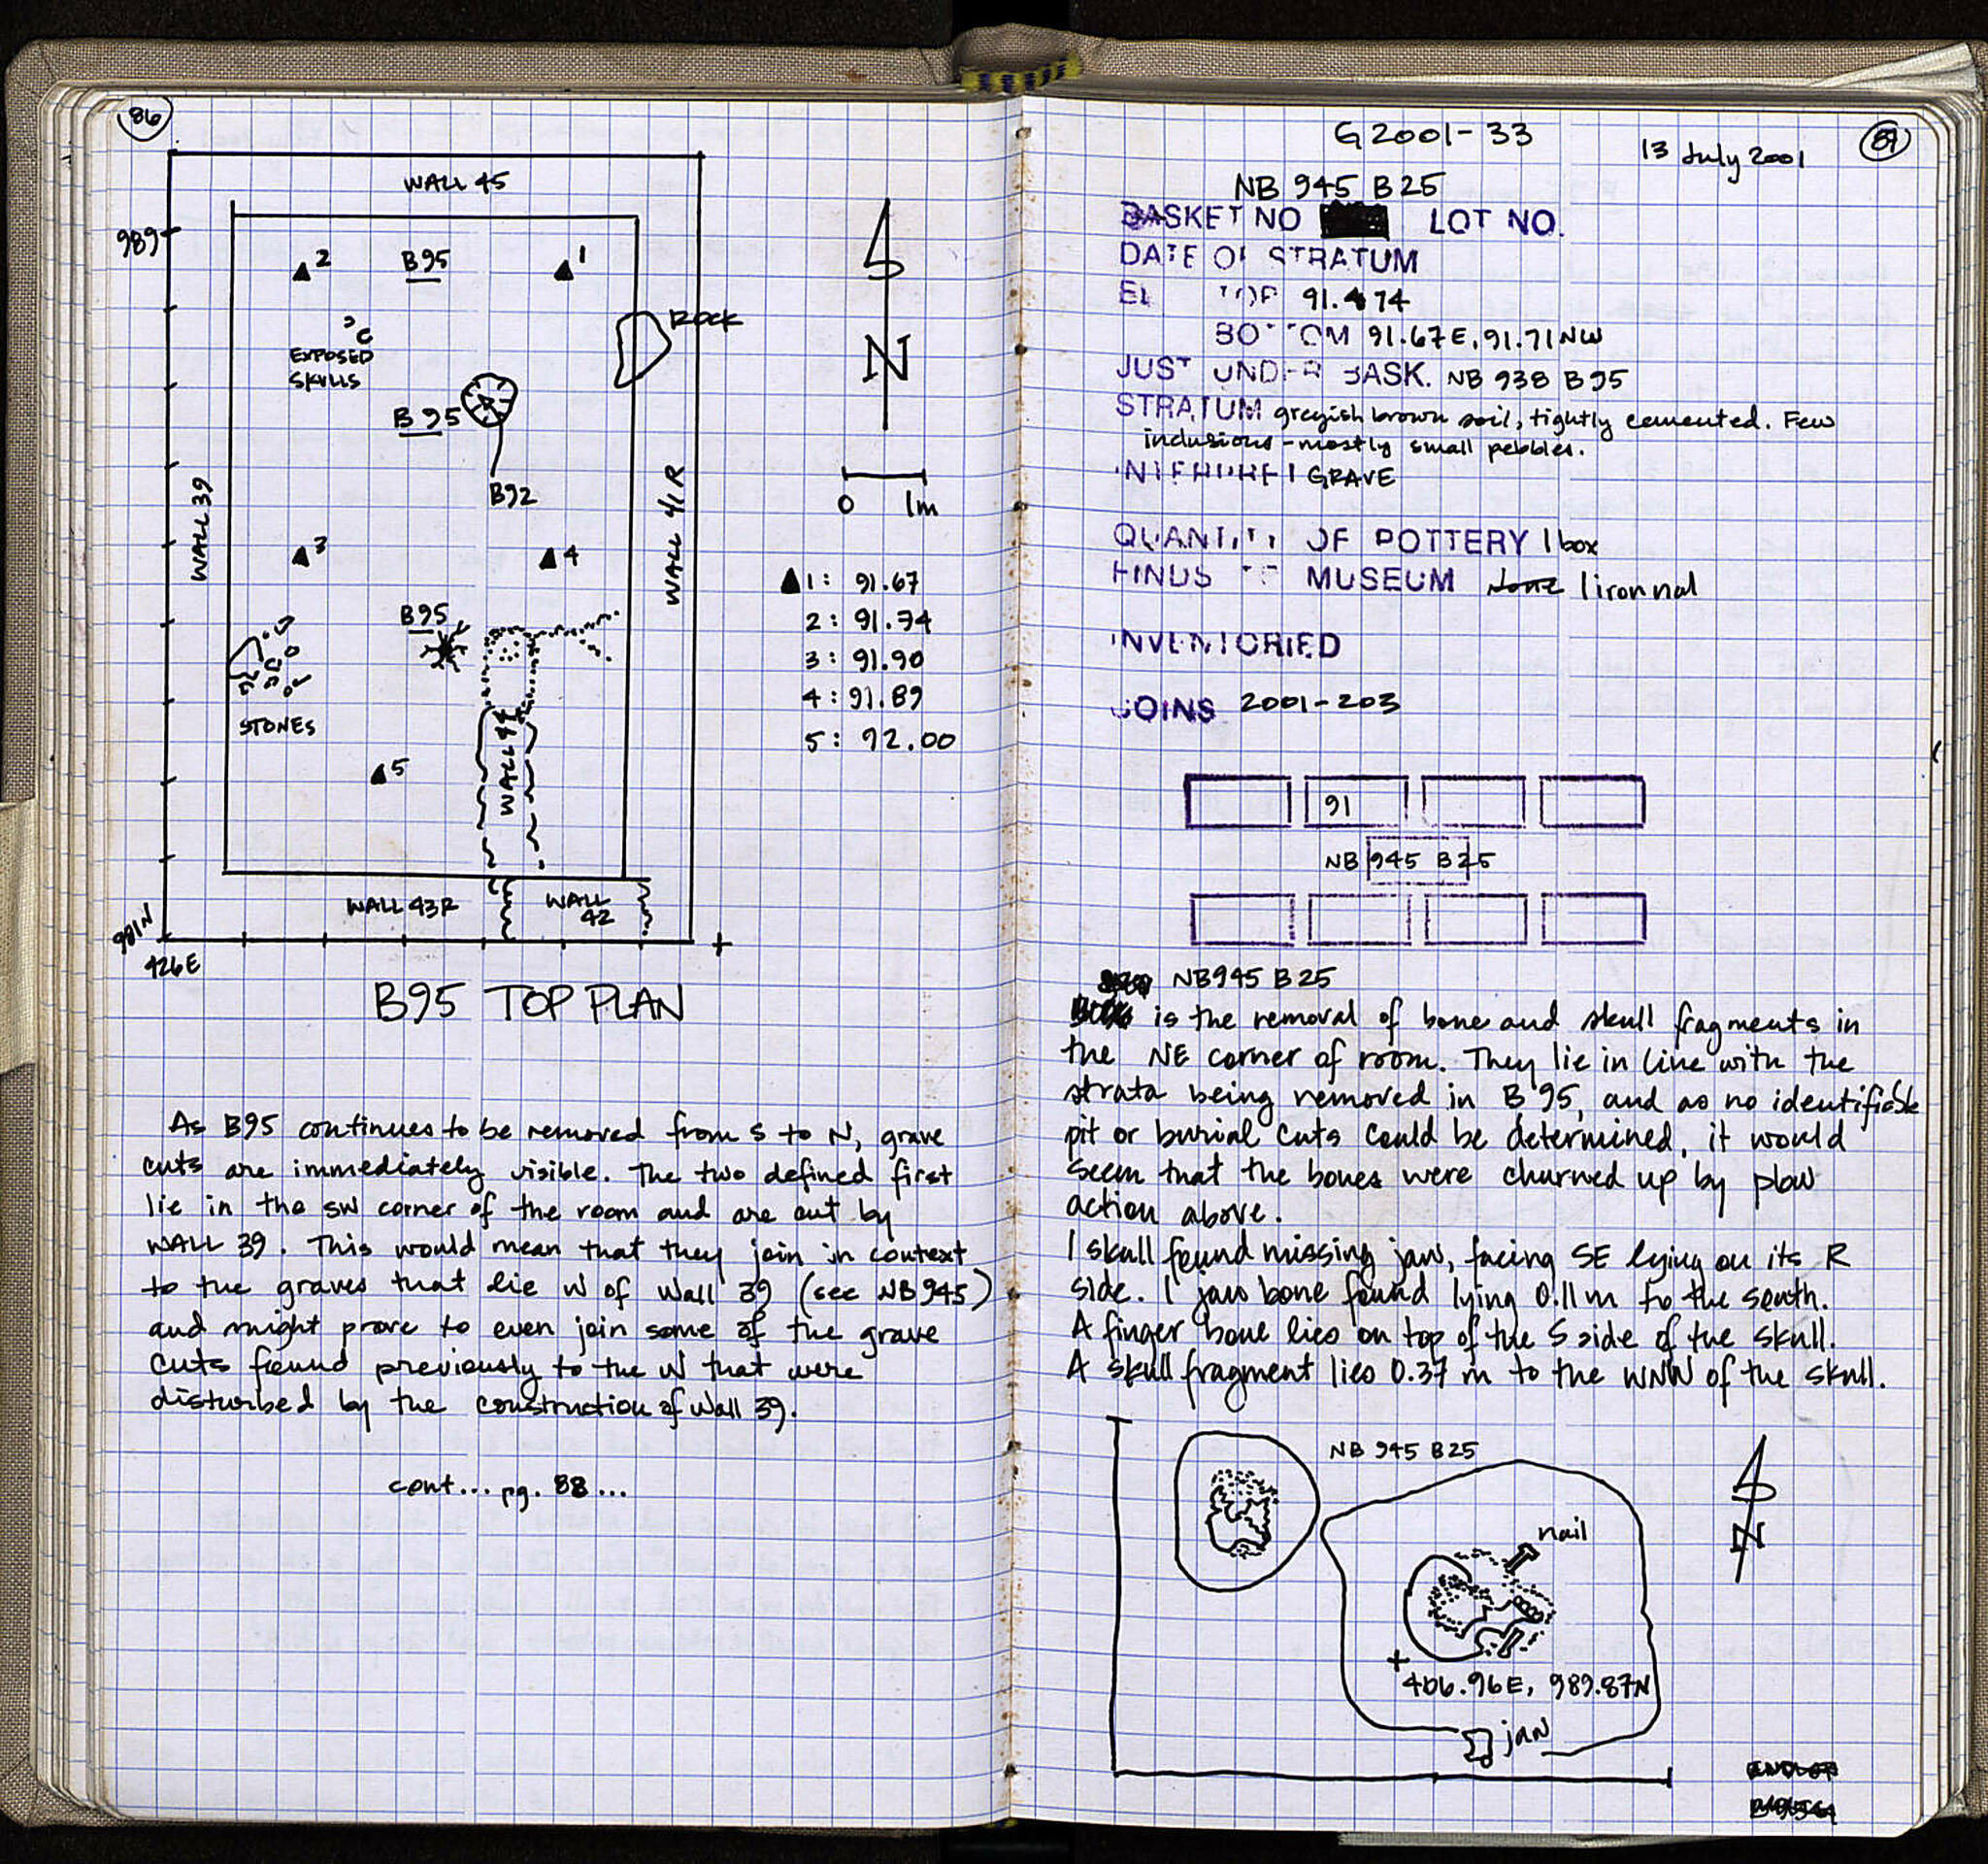 86
WALL 45
989
2
B95
1
ROCK
EXPOSED
SKULLS
B95
N
B92
WALL 39
WALL 41R
0 1m
3
4
1: 91.67
2: 91.74
3: 91.90
4: 91.89
5: 92.00
B95
STONES
WALL 44
5
WALL 43R
WALL
42
981N
426E
B95 TOP PLAN
As B95 continues to be removed from S to N, grave
cuts are immediately visible. The two defined first
lie in the SW corner of the room and are cut by
WALL 39. This would mean that they join in context
to the graves that lie W of Wall 39 (see NB945)
and might prove to even join some of the grave
cuts found previously to the W that were
disturbed by the construction of Wall 39.
cont... pg. 88...
G2001-33
13 July 2001
87
NB 945 B25
BASKET NO LOT NO.
DATE OF STRATUM
EL TOP 91.474
BOTTOM 91.67E, 91.71NW
JUST UNDER BASK. NB 938 B95
STRATUM greyish brown soil, tightly cemented. Few
inclusions - mostly small pebbles.
INTERPRET GRAVE
QUANTITY OF POTTERY 1 box
FINDS TO MUSEUM none 1 iron nail
INVENTORIED
COINS 2001-203
91
NB 945 B25
NB945 B25
is the removal of bone and skull fragments in
the NE corner of room. They lie in line with the
strata being removed in B95, and as no identifiable
pit or burial cuts could be determined, it would
seem that the bones were churned up by plow
action above.
1 skull found missing jaw, facing SE lying on its R
side. 1 jaw bone found lying 0.11m to the south.
A finger bone lies on top of the S side of the skull.
A skull fragment lies 0.37 m to the WNW of the skull.
NB 945 B25
nail
N
406.96E, 989.87N
jaw